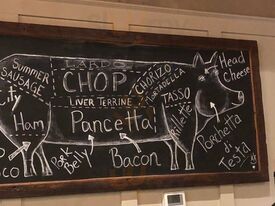 LARDO
SUMMER
SAUSAGE
CHOP
CHORIZO
MORTADELLA
Head
Cheese
City
Ham
LIVER TERRINE
TASSO
Rillette
Pancetta!
Porchetta
di
Testa
Pork
Belly
Bacon